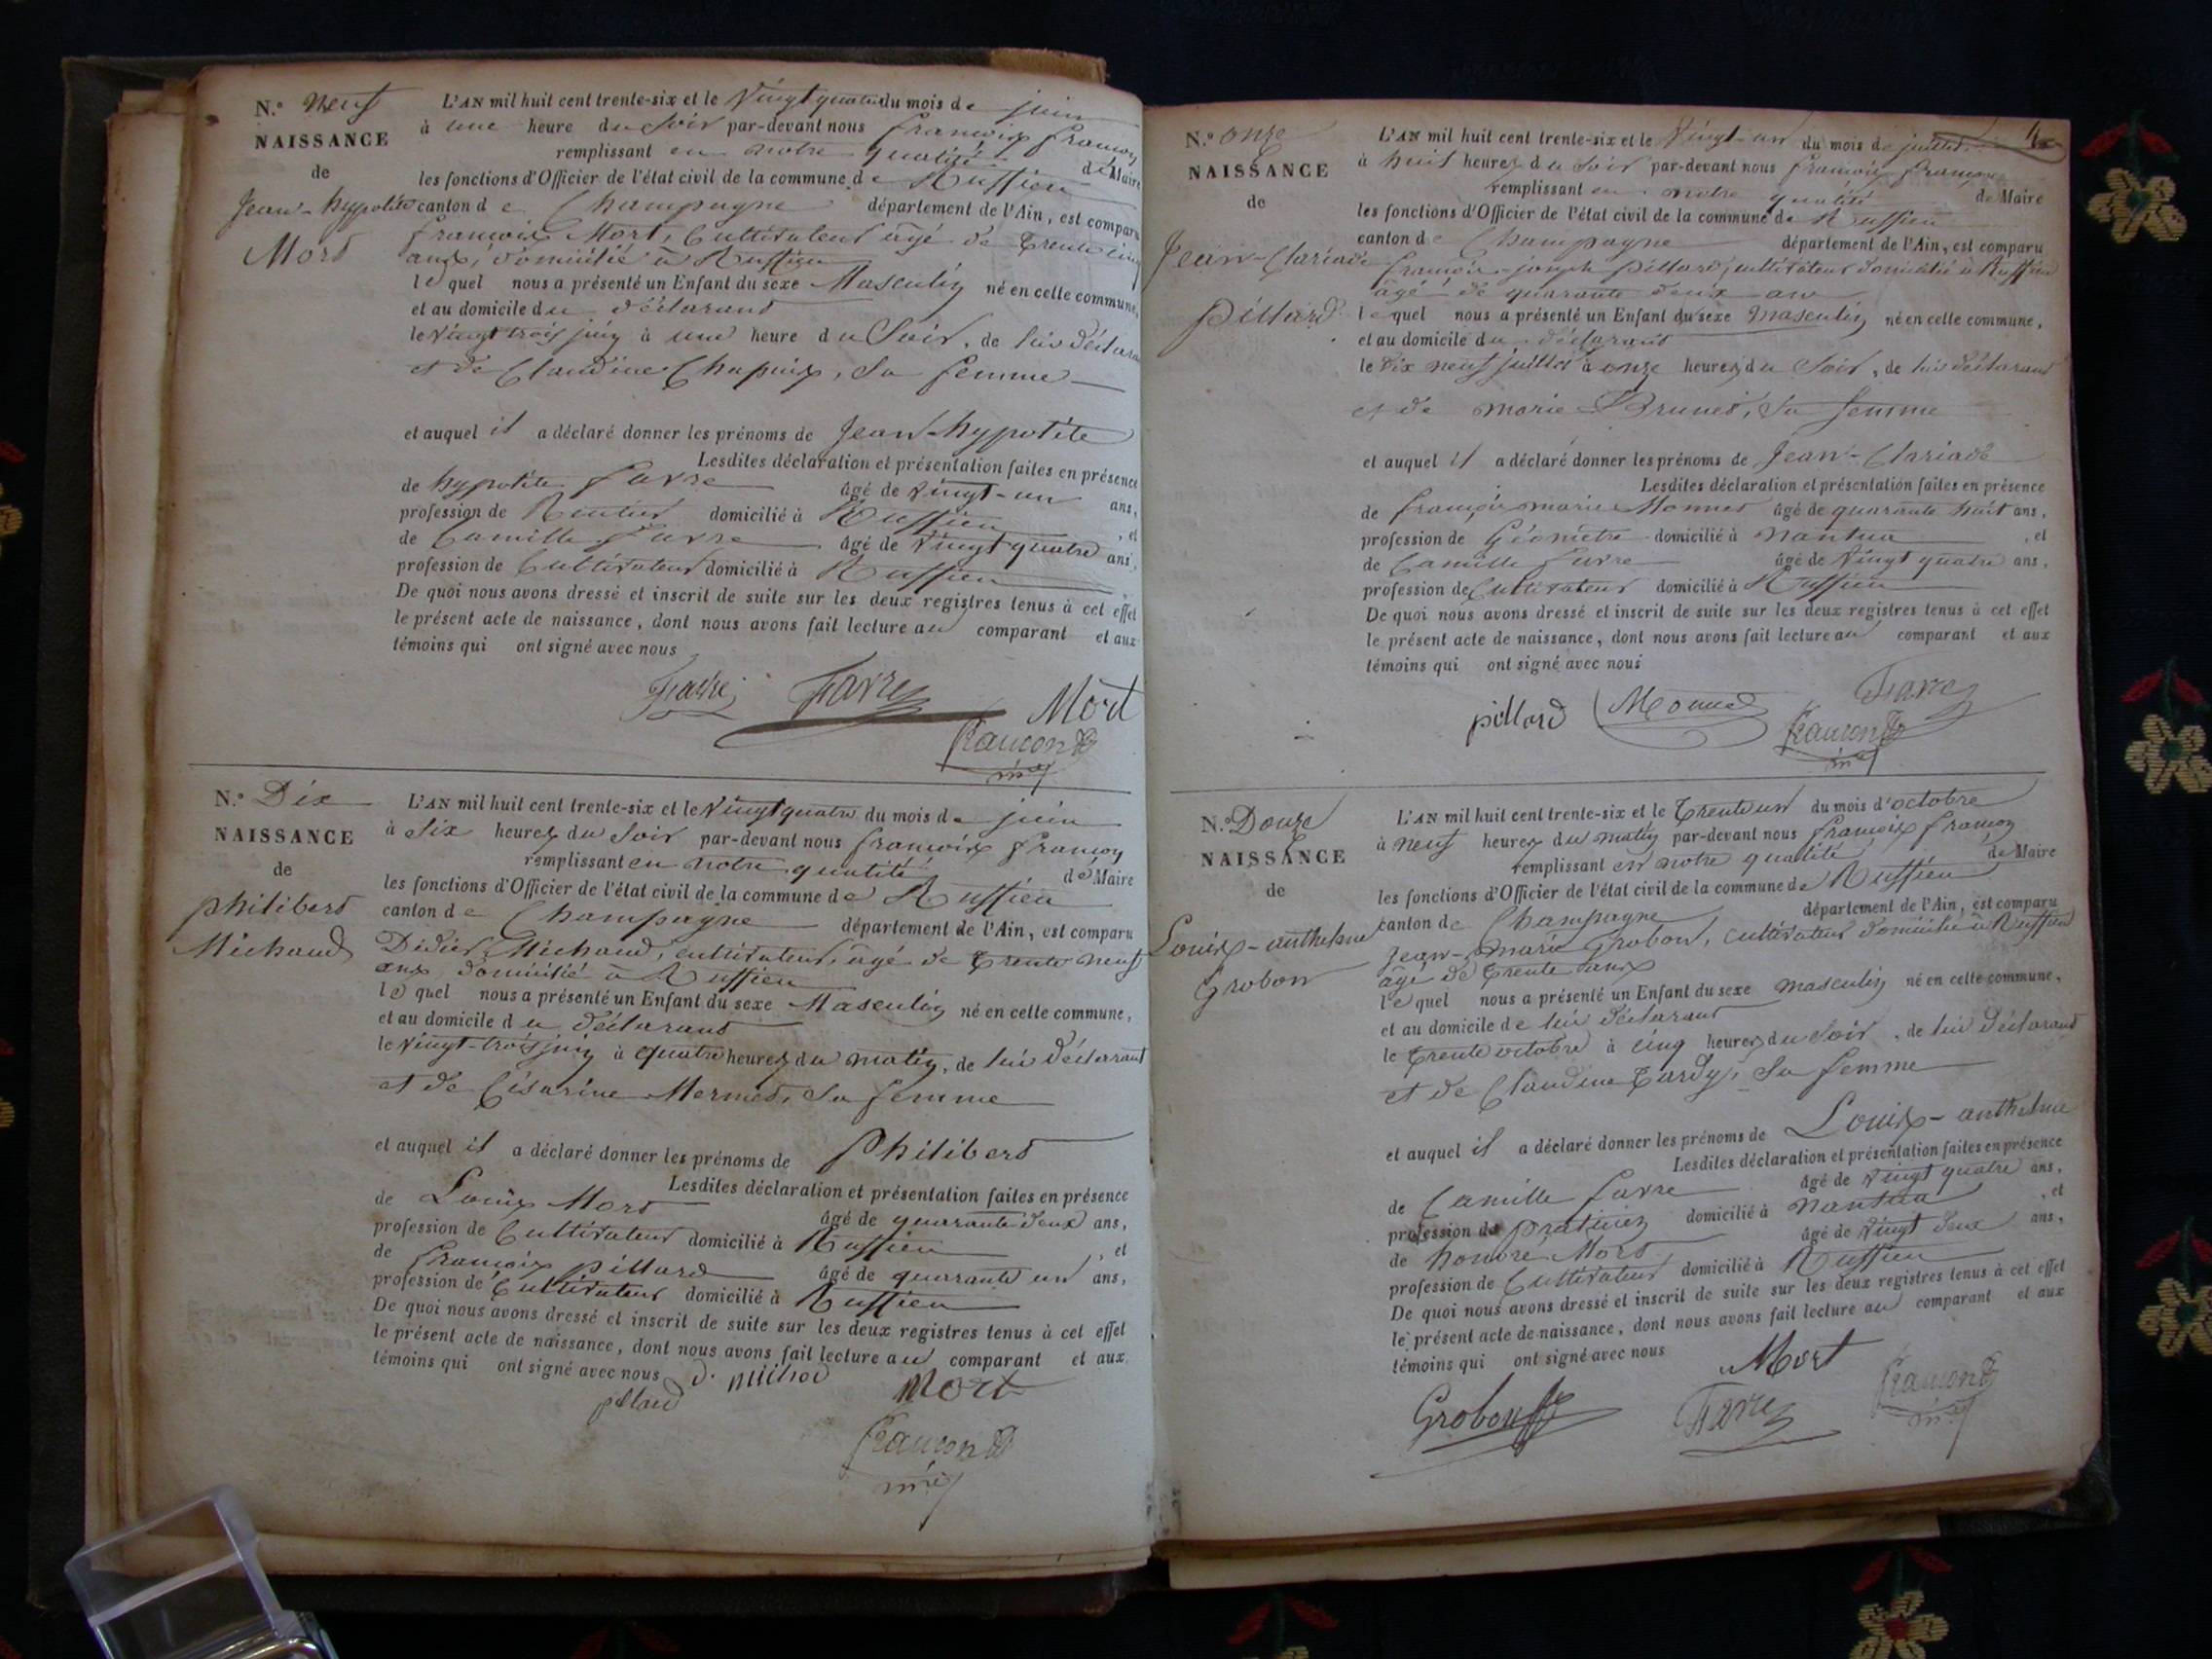 N.o neuf
NAISSANCE
de
Jean-hypolite
Mort
L'AN mil huit cent trente-six et le Vingt quatre du mois de juin
à une heure du Soir par-devant nous françois françon
remplissant en notre qualité de Maire
les fonctions d'Officier de l'état civil de la commune de Ruffieu
canton de Champagne département de l'Ain, est comparu
françois Mort, Cultivateur âgé de Trente cinq
ans, domicilié à Ruffieu
lequel nous a présenté un Enfant du sexe Masculin né en cette commune,
et au domicile du déclarant
le Vingt trois juin à une heure du Soir, de lui déclarant
et de Claudine Chapuix, Sa femme
et auquel il a déclaré donner les prénoms de Jean-hypolite
Lesdites déclaration et présentation faites en présence
de hypolite favre âgé de Vingt-un ans,
profession de Rentier domicilié à Ruffieu, et
de Camille favre âgé de Vingt quatre ans,
profession de Cultivateur domicilié à Ruffieu
De quoi nous avons dressé et inscrit de suite sur les deux registres tenus à cet effet
le présent acte de naissance, dont nous avons fait lecture au comparant et aux
témoins qui ont signé avec nous
Favre Favre Mort
francon
mre
N.o Dix
NAISSANCE
de
philibert
Michaud
L'AN mil huit cent trente-six et le Vingt quatre du mois de juin
à Six heures du Soir par-devant nous françois françon
remplissant en notre qualité de Maire
les fonctions d'Officier de l'état civil de la commune de Ruffieu
canton de Champagne département de l'Ain, est comparu
Didier Michaud, cultivateur, âgé de Trente neuf
ans domicilié à Ruffieu
lequel nous a présenté un Enfant du sexe Masculin né en cette commune,
et au domicile du déclarant
le Vingt-trois juin à quatre heures du matin, de lui déclarant
et de Césarine Mermet, Sa femme
et auquel il a déclaré donner les prénoms de Philibert
Lesdites déclaration et présentation faites en présence
de Louis Mort âgé de quarante deux ans,
profession de Cultivateur domicilié à Ruffieu, et
de françois pillard âgé de quarante un ans,
profession de Cultivateur domicilié à Ruffieu
De quoi nous avons dressé et inscrit de suite sur les deux registres tenus à cet effet
le présent acte de naissance, dont nous avons fait lecture au comparant et aux
témoins qui ont signé avec nous d. michod
pillard Mort
francon
mre
4
N.o onze
NAISSANCE
de
Jean-Clariade
pillard
L'AN mil huit cent trente-six et le Vingt-un du mois de juillet
à huit heures du Soir par-devant nous françois françon
remplissant en notre qualité de Maire
les fonctions d'Officier de l'état civil de la commune de Ruffieu
canton de Champagne département de l'Ain, est comparu
françois-joseph pillard, cultivateur domicilié à Ruffieu
âgé de quarante deux ans
lequel nous a présenté un Enfant du sexe masculin né en cette commune,
et au domicile du déclarant
le dix neuf juillet à onze heures du Soir, de lui déclarant
et de marie Brunet, Sa femme
et auquel il a déclaré donner les prénoms de Jean-Clariade
Lesdites déclaration et présentation faites en présence
de françois marie Monnet âgé de quarante huit ans,
profession de Géomètre domicilié à nantua, et
de Camille favre âgé de Vingt quatre ans,
profession de Cultivateur domicilié à Ruffieu
De quoi nous avons dressé et inscrit de suite sur les deux registres tenus à cet effet
le présent acte de naissance, dont nous avons fait lecture au comparant et aux
témoins qui ont signé avec nous
pillard Monnet Favre
francon
mre
N.o Douze
NAISSANCE
de
Louis-anthelme
Grobon
L'AN mil huit cent trente-six et le Trente un du mois d'octobre
à neuf heures du matin par-devant nous françois françon
remplissant en notre qualité de Maire
les fonctions d'Officier de l'état civil de la commune de Ruffieu
canton de Champagne département de l'Ain, est comparu
Jean-marie Grobon, cultivateur domicilié à Ruffieu
âgé de Trente ans
lequel nous a présenté un Enfant du sexe masculin né en cette commune,
et au domicile de lui déclarant
le Trente octobre à cinq heures du Soir, de lui déclarant
et de Claudine Tardy, Sa femme
et auquel il a déclaré donner les prénoms de Louis-anthelme
Lesdites déclaration et présentation faites en présence
de Camille favre âgé de Vingt quatre ans,
profession de praticien domicilié à nantua, et
de honoré Mort âgé de Vingt deux ans,
profession de Cultivateur domicilié à Ruffieu
De quoi nous avons dressé et inscrit de suite sur les deux registres tenus à cet effet
le présent acte de naissance, dont nous avons fait lecture au comparant et aux
témoins qui ont signé avec nous Mort
Grobon Favre francon
mre